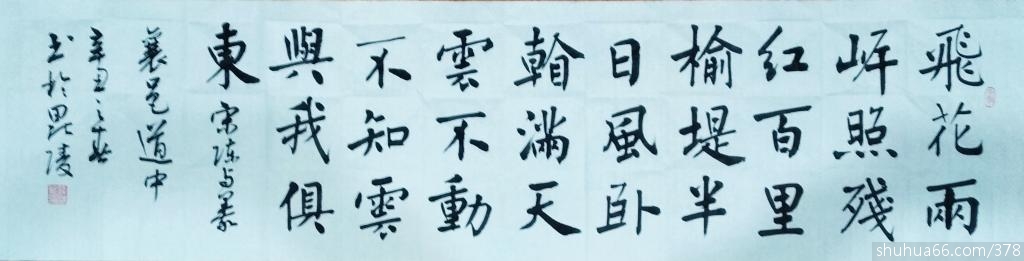 飛花兩
岸照殘
红百里
榆堤半
日風卧
滿天
雲不動
不知雲
與我俱
東
宋陳与義
襄邑道中
辛丑之春
书於毘陵
shuhua66.com/378